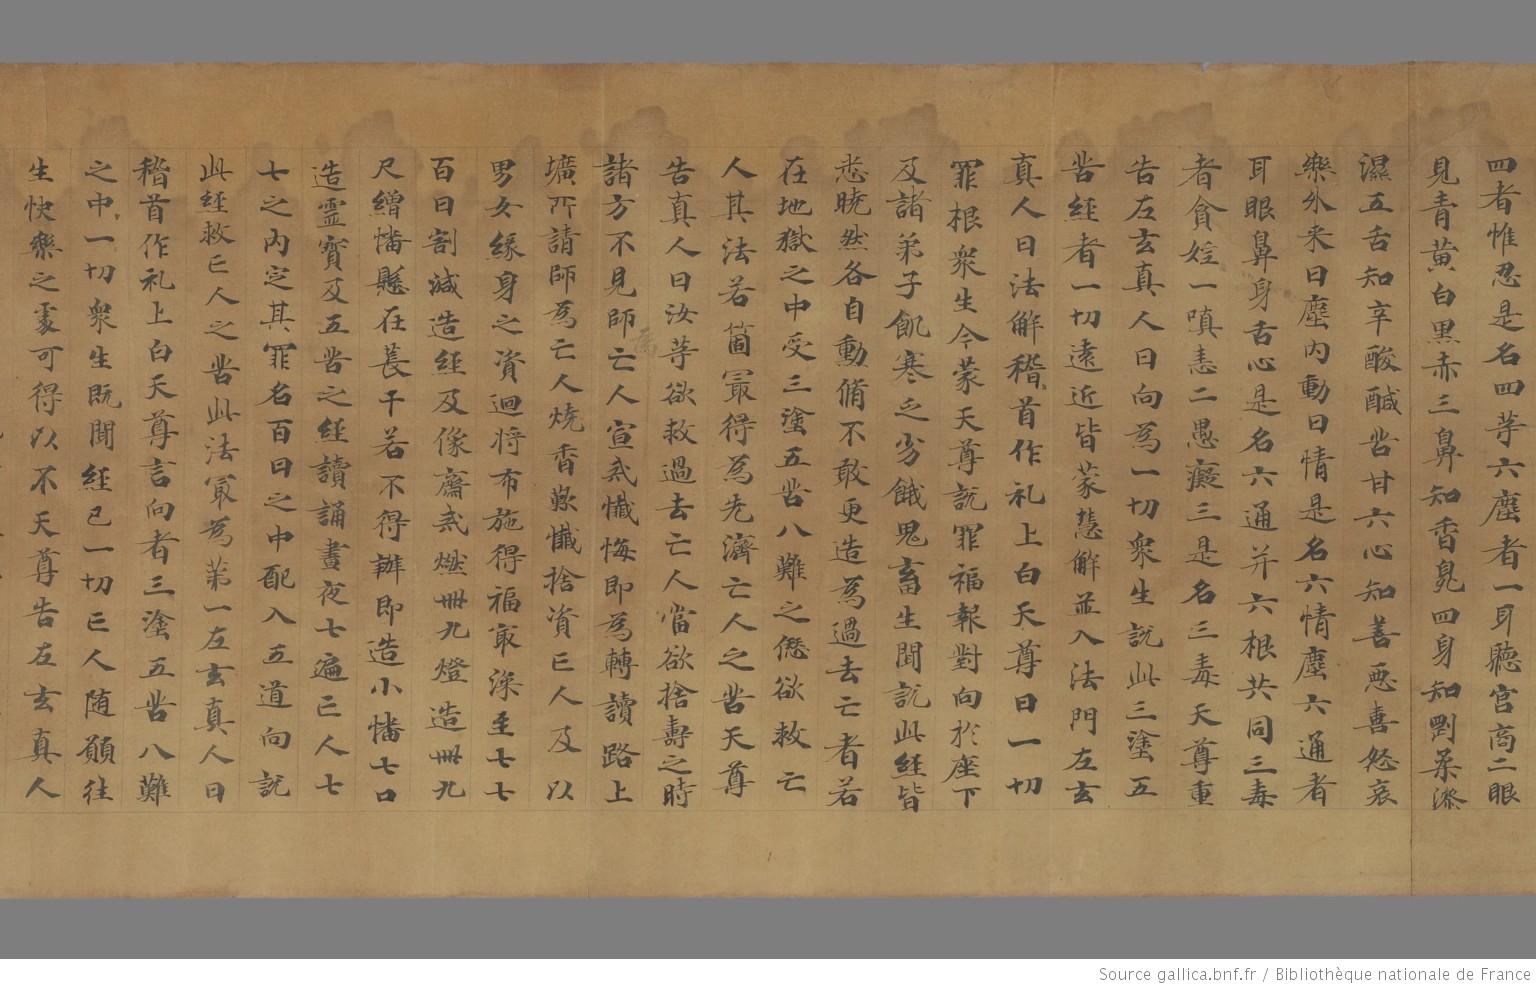 四者惟忍是名四等六塵者一耳聽宮商二眼
見青黃白黑赤三鼻知香臭四身知剛柔滲
濕五舌知辛酸醎苦甘六心知善惡喜怒哀
樂外来曰塵內動曰情是名六情塵六通者
耳眼鼻身舌心是名六通并六根共同三毒
者貪婬一嗔恚二愚癡三是名三毒天尊重
告左玄真人曰向為一切衆生說此三塗五
苦経者一切遠近皆蒙慧解並入法門左玄
真人曰法解稽首作礼上白天尊曰一切
罪根衆生今蒙天尊說罪福報對向於座下
及諸弟子飢寒之劣餓鬼畜生聞說此経皆
悉曉然各自動脩不敢更造為過去亡者若
在地獄之中受三塗五苦八難之僽欲救亡
人其法若箇冣得為先濟亡人之苦天尊
告真人曰汝䒭欲救過去亡人當欲捨壽之時
諸方不見師亡人宣弍懺悔即為轉讀路上
壙所請師為亡人燒香歎懺捨資亡人及以
男女緣身之資迴將布施得福冣深至七七
百日割減造経及像齋弍燃卌九燈造卌九
尺繒幡懸在萇干若不得辦即造小幡七口
造靈寳及五苦之経讀誦晝夜七遍亡人七
七之內定其罪名百日之中配入五道向說
此経救亡人之苦此法冣為第一左玄真人曰
稽首作礼上白天尊言向者三塗五苦八難
之中一切衆生既聞経已一切亡人随願往
生快樂之處可得以不天尊告左玄真人